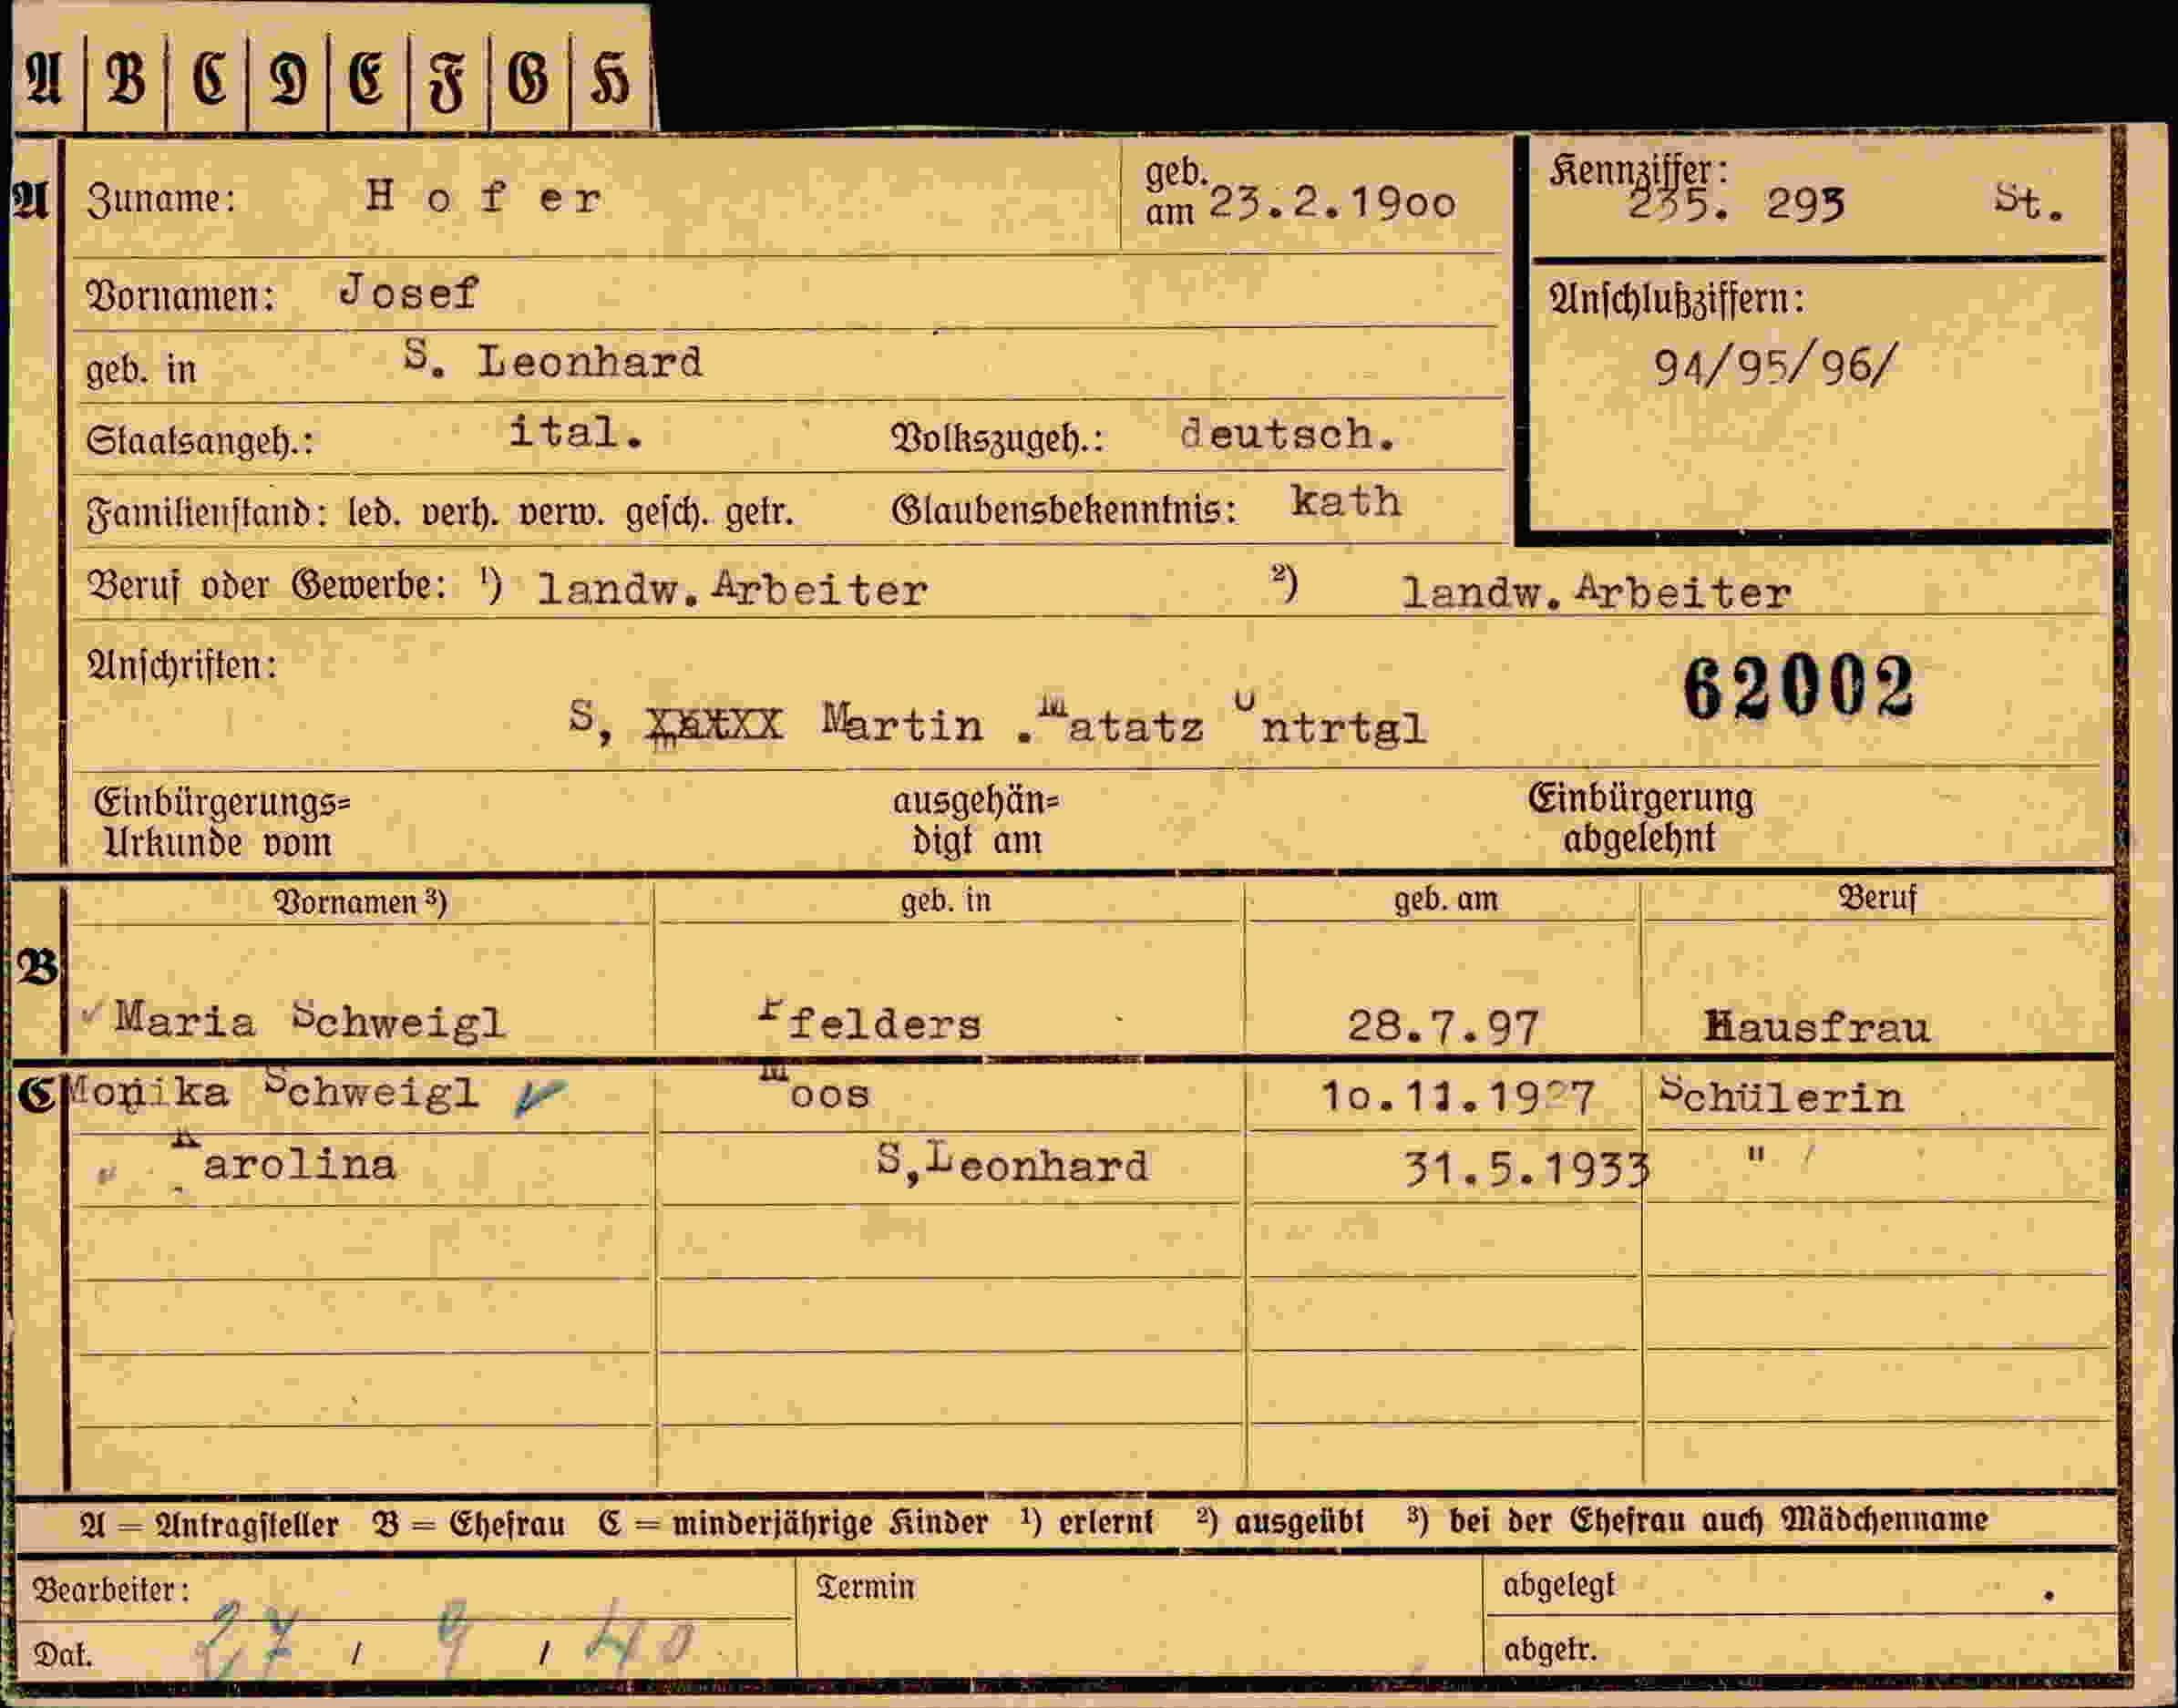 A B C D E F G H
A Zuname: Hofer geb. am 23.2.1900 Kennziffer: 235. 293 St.
Vornamen: Josef Anschlußziffern:
geb. in S. Leonhard 94/95/96/
Staatsangeh.: ital. Volkszugeh.: deutsch.
Familienstand: led. verh. verw. gesch. getr. Glaubensbekenntnis: kath
Beruf oder Gewerbe: ¹) landw. Arbeiter ²) landw. Arbeiter
Anschriften: 62002
S, Martin . Matatz Untrtgl
Einbürgerungs= ausgehän= Einbürgerung
Urkunde vom digt am abgelehnt
Vornamen ³) geb. in geb. am Beruf
B
Maria Schweigl Pfelders 28.7.97 Hausfrau
C Monika Schweigl Moos 10.11.1927 Schülerin
" Karolina S,Leonhard 31.5.1933 "
A = Antragsteller B = Ehefrau C = minderjährige Kinder ¹) erlernt ²) ausgeübt ³) bei der Ehefrau auch Mädchenname
Bearbeiter: Termin abgelegt .
Dat. 27 / 9 / 40 abgetr.